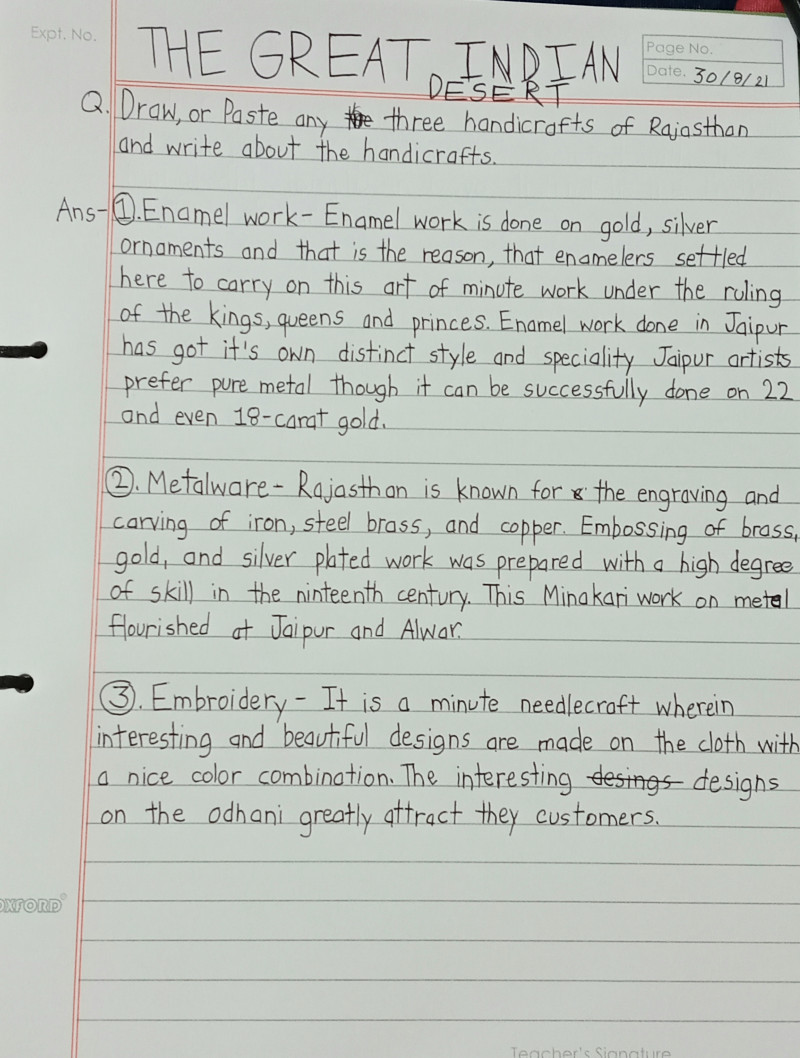 Expt. No.
THE GREAT INDIAN
DESERT
Page No.
Date. 30/8/21
Q. Draw, or Paste any the three handicrafts of Rajasthan
and write about the handicrafts.
Ans- ①. Enamel work- Enamel work is done on gold, silver
ornaments and that is the reason, that enamelers settled
here to carry on this art of minute work under the ruling
of the kings, queens and princes. Enamel work done in Jaipur
has got it's own distinct style and speciality Jaipur artists
prefer pure metal though it can be successfully done on 22
and even 18-carat gold.
②. Metalware- Rajasthan is known for the engraving and
carving of iron, steel brass, and copper. Embossing of brass,
gold, and silver plated work was prepared with a high degree
of skill in the ninteenth century. This Minakari work on metal
flourished at Jaipur and Alwar.
③. Embroidery- It is a minute needlecraft wherein
interesting and beautiful designs are made on the cloth with
a nice color combination. The interesting desings designs
on the odhani greatly attract they customers.
OXFORD
Teacher's Signature